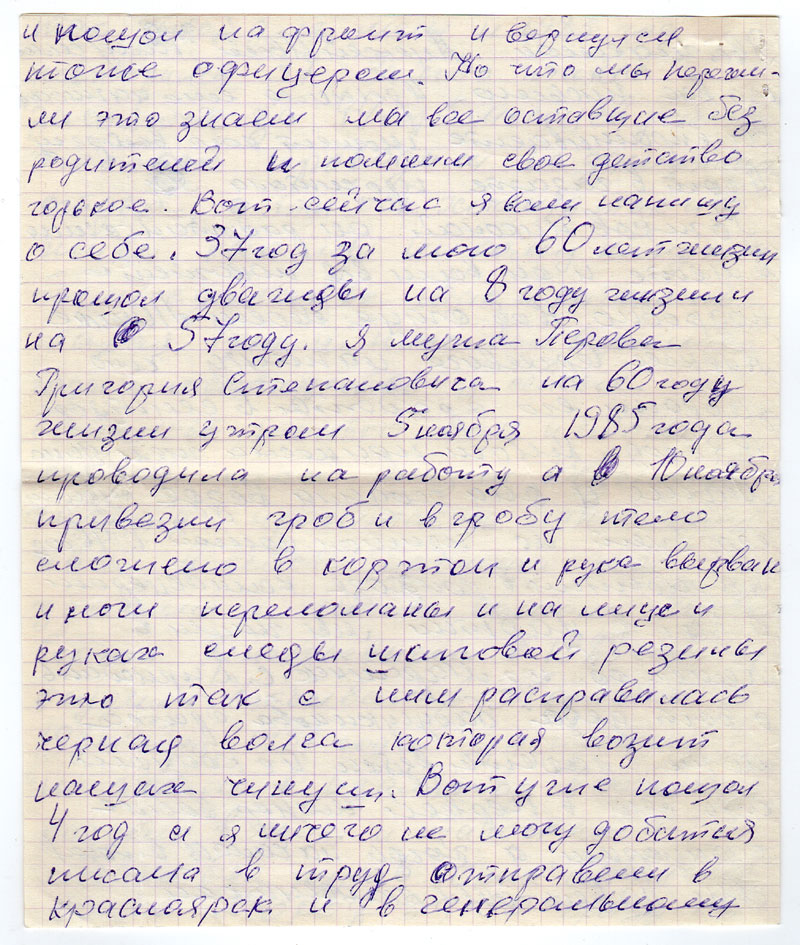 и пошол на фронт и вернулся
тоже офицером. Но что мы пережи-
ли это знаем мы все оставшие без
родителей и помним свое детство
горькое. Вот сейчас я вам напишу
о себе. 37 год за мою 60 лет жизни
прошол дважды на 8 году жизни и
на 57 году. Я мужа Перова
Григория Степановича на 60 году
жизни утром 5 ноября 1985 года
проводила на работу а 10 ноября
привезли гроб и в гробу тело
сложено в и рука вырван
и ноги переломаны и на лице и
руках следы шиповой резины
это так с ним расправилась
черная волга которая возит
наших чинуш. Вот уже пошол
4 год а я ничего не могу добится
писала в труд отправели в
красноярск и в генеральному